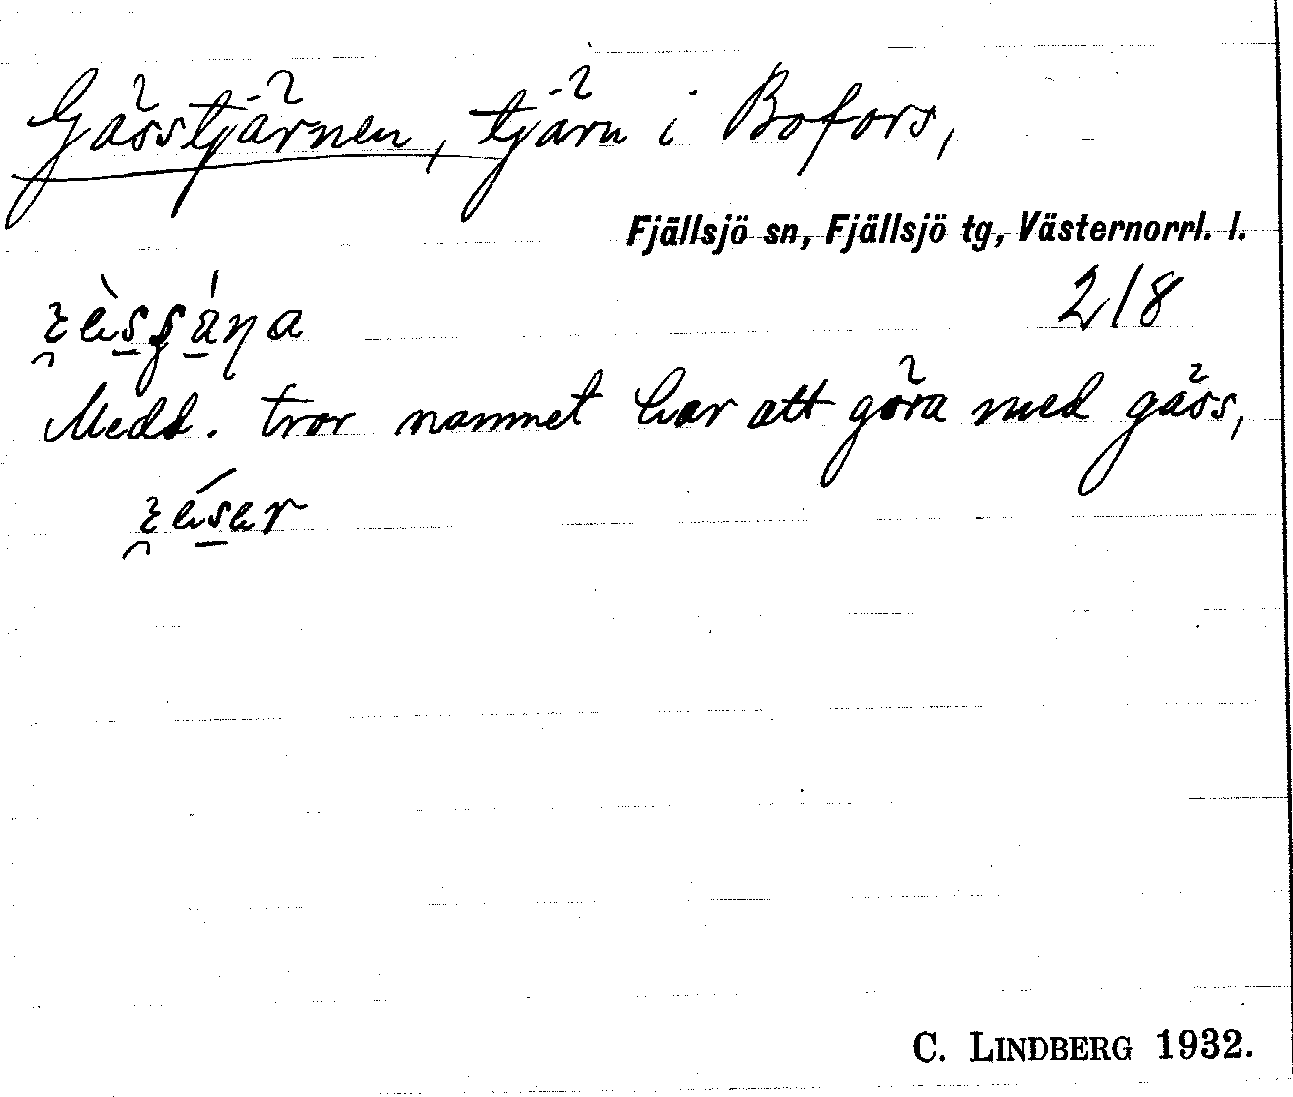 Gässtjärnen, tjärn i Bofors,
Fjällsjö sn, Fjällsjö tg, Västernorrl. l.
218
Medd. tror namnet har att göra med gäss,
C. LINDBERG 1932.